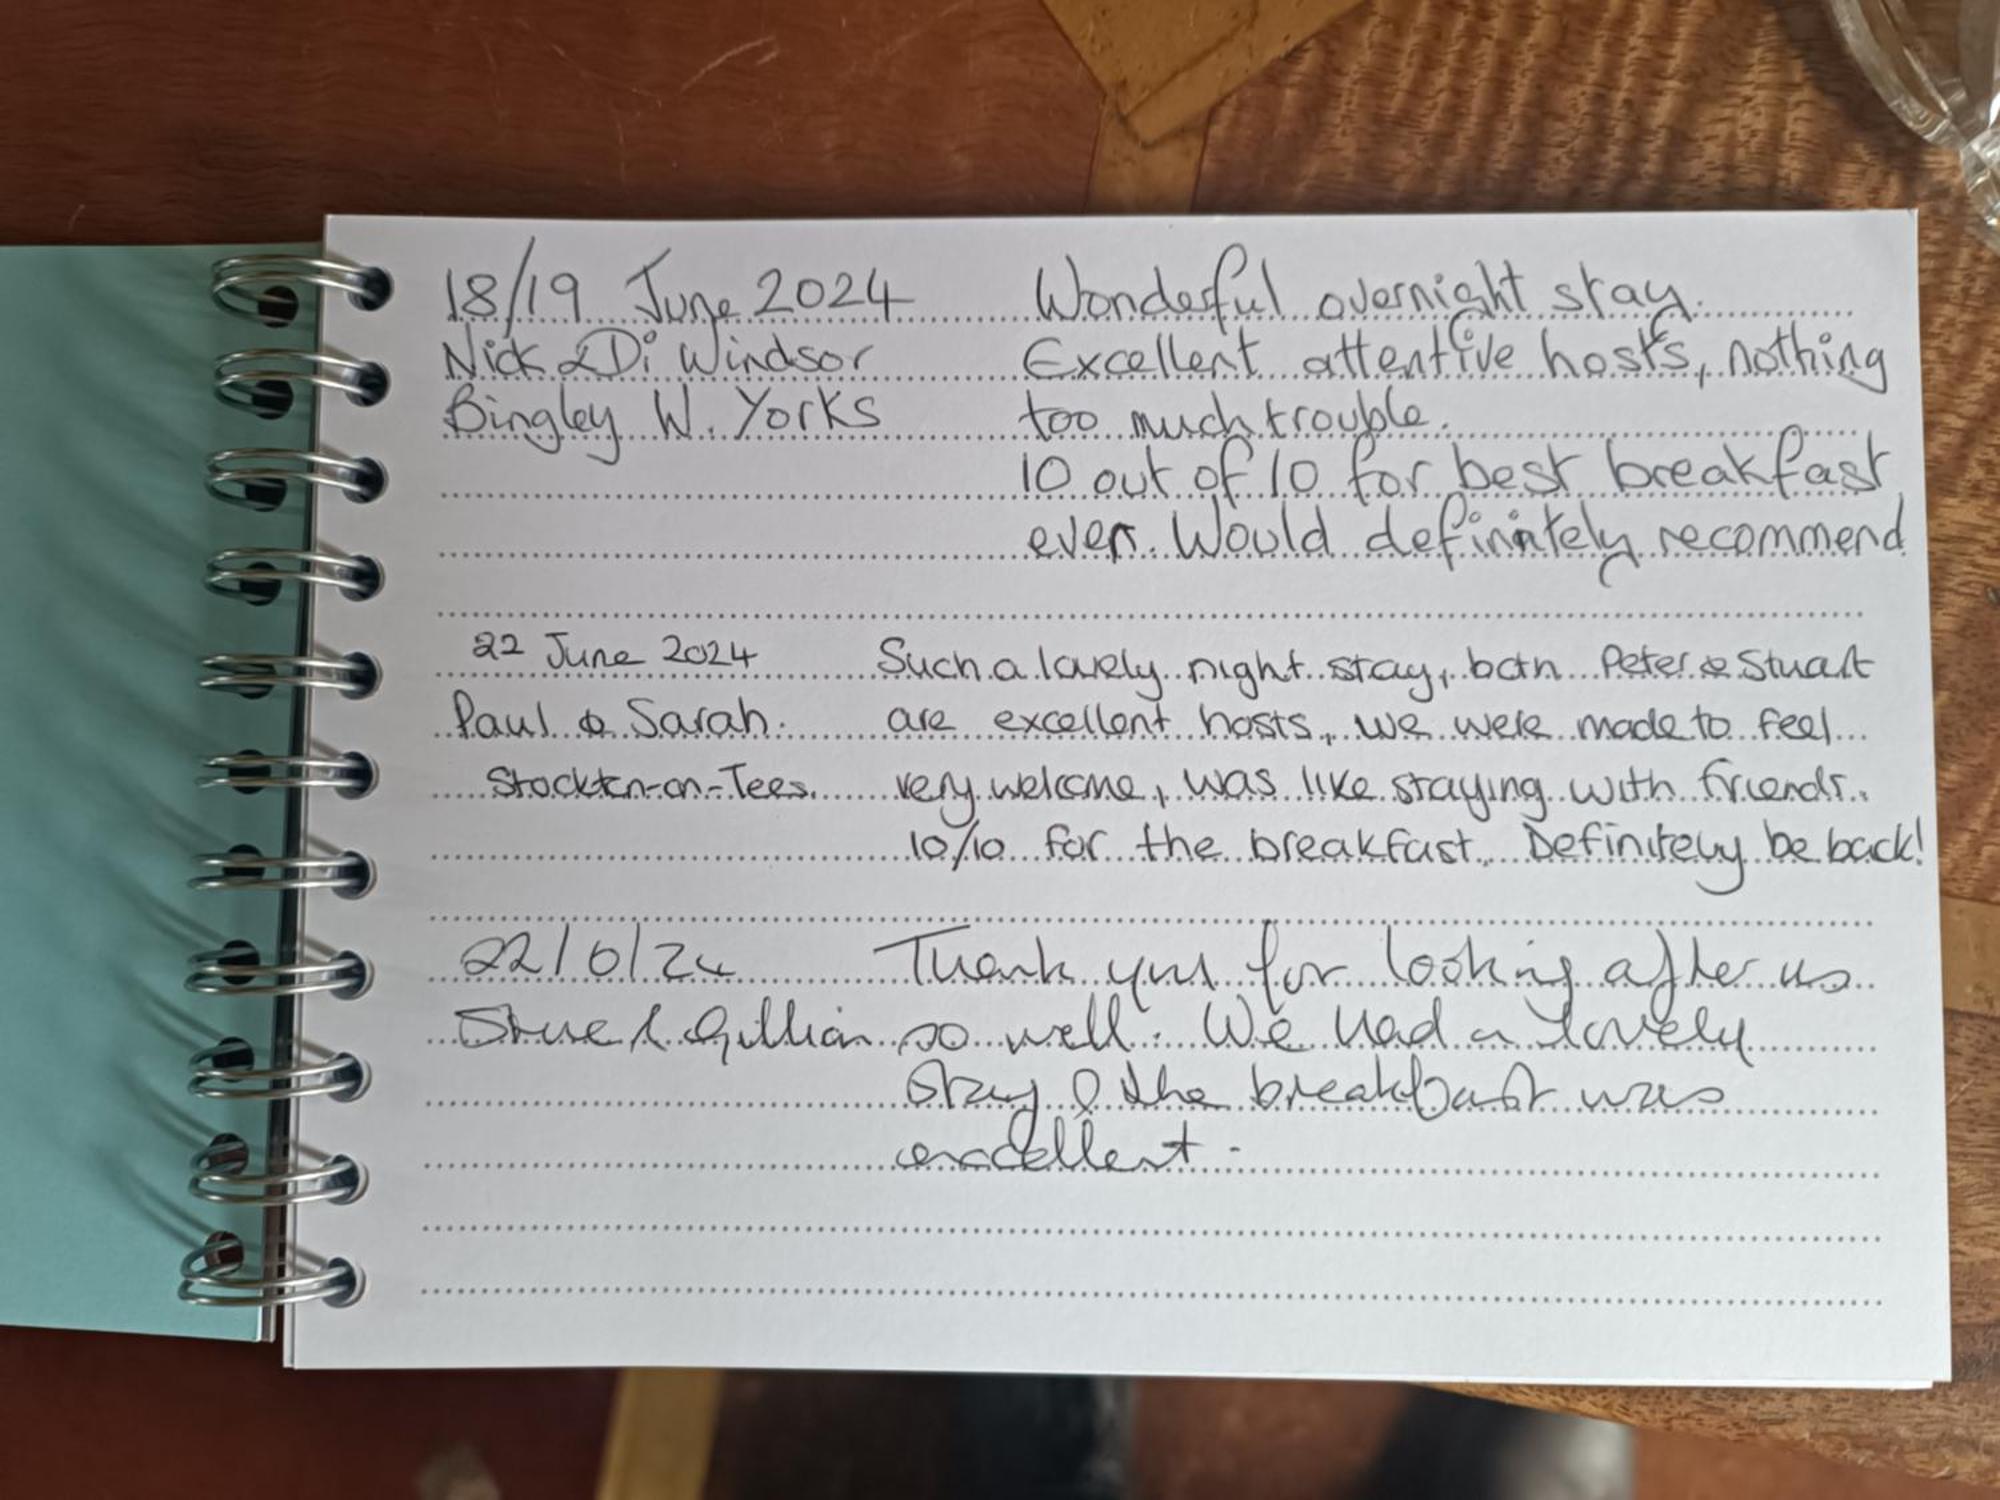 18/19 June 2024 Wonderful overnight stay.
Nick & Di Windsor Excellent attentive hosts, nothing
Bingley W. Yorks too much trouble.
10 out of 10 for best breakfast
ever. Would definitely recommend
22 June 2024 Such a lovely night stay, both Peter & Stuart
Paul & Sarah. are excellent hosts, we were made to feel
Stockton-on-Tees. very welcome, was like staying with friends.
10/10 for the breakfast. Definitely be back!
22/6/24 Thank you for looking after us
& Gillian so well. We had a lovely
stay & the breakfast was
excellent.